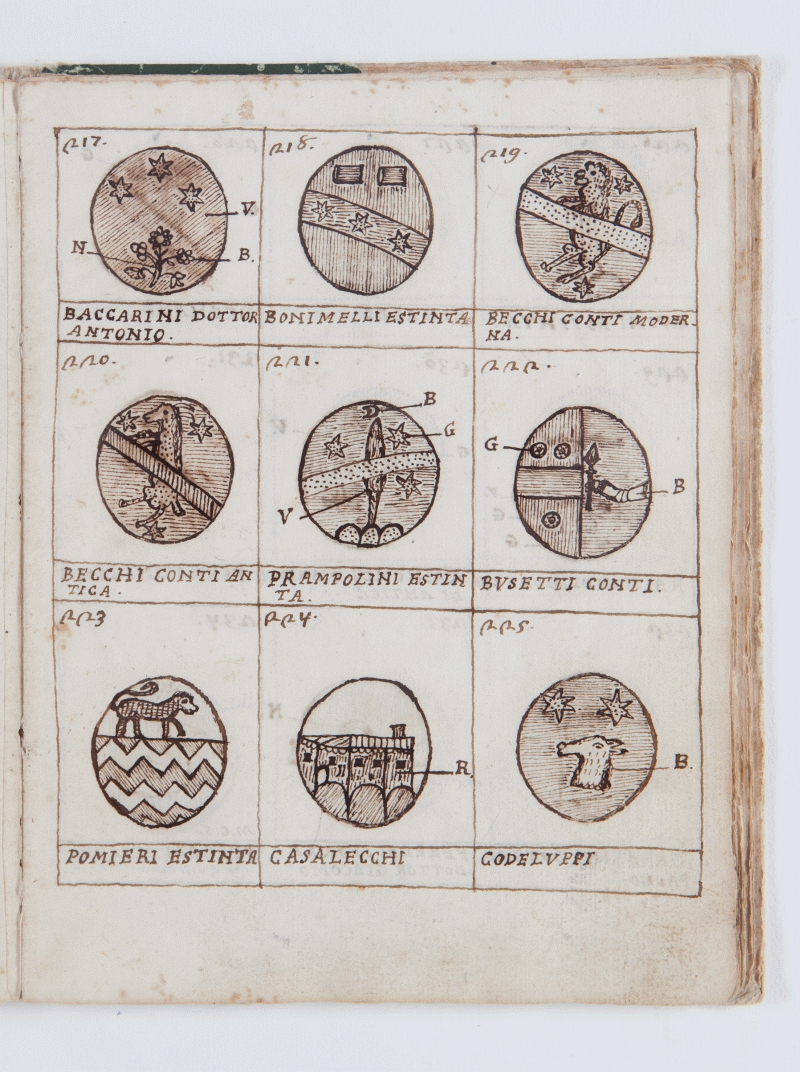 217.
218.
219.
V.
N
B.
BACCARINI DOTTOR
ANTONIO.
BONIMELLI ESTINTA
BECCHI CONTI MODER-
NA.
220.
221.
222.
B
G
V
G
B
BECCHI CONTI AN
TICA.
PRAMPOLINI ESTIN
TA.
BVSETTI CONTI.
223
224.
225.
R.
B.
POMIERI ESTINTA
CASALECCHI
CODELVPPI